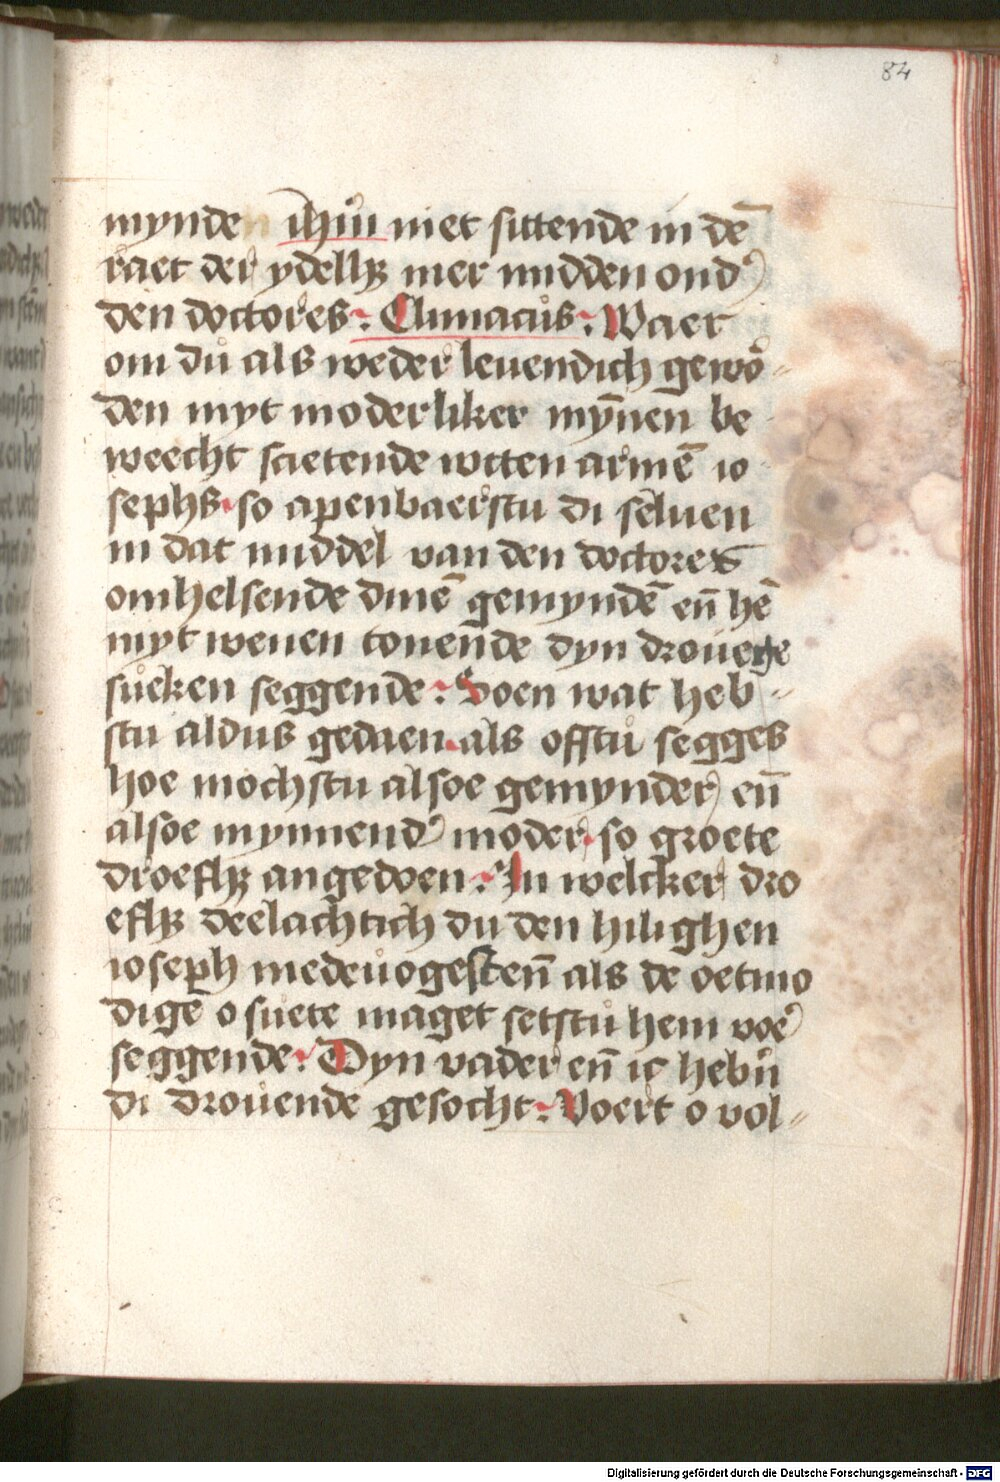 84
mynde ihũ niet sittende in dē
raet der ydelhꝫ mer midden ond'
den doctores: Climacus: Waer
om du als weder leuendich gewō
den myt moderliker mȳnen be
weecht scietende wtten armē io
sephs so apenbaerstu di seluen
in dat middel van den doctores
omhelsende dinē gemyndē en̄ hē
myt wenen tonende dyn drouege
sueken seggende: Soen wat heb-
stu aldus gedaen als offtu segges
hoe mochstu alsoe gemynder en̄
alsoe mynnend' moder so groete
droefhꝫ angedoen: In welcker dro
efhꝫ deelachtich du den hilighen
ioseph medeuogesten̄ als de oetmo
digē o suete maget setstu hem voer
seggende: Dyn vader en̄ ic hebn̄
di drouende gesocht: Voert o vol-
Digitalisierung gefördert durch die Deutsche Forschungsgemeinschaft - DFG